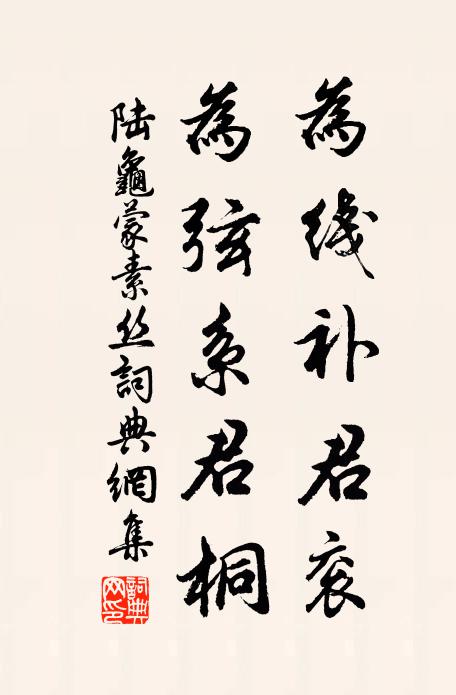 為线补君衮
為弦系君桐
陆龜蒙素丝詞典網集
詞典网印